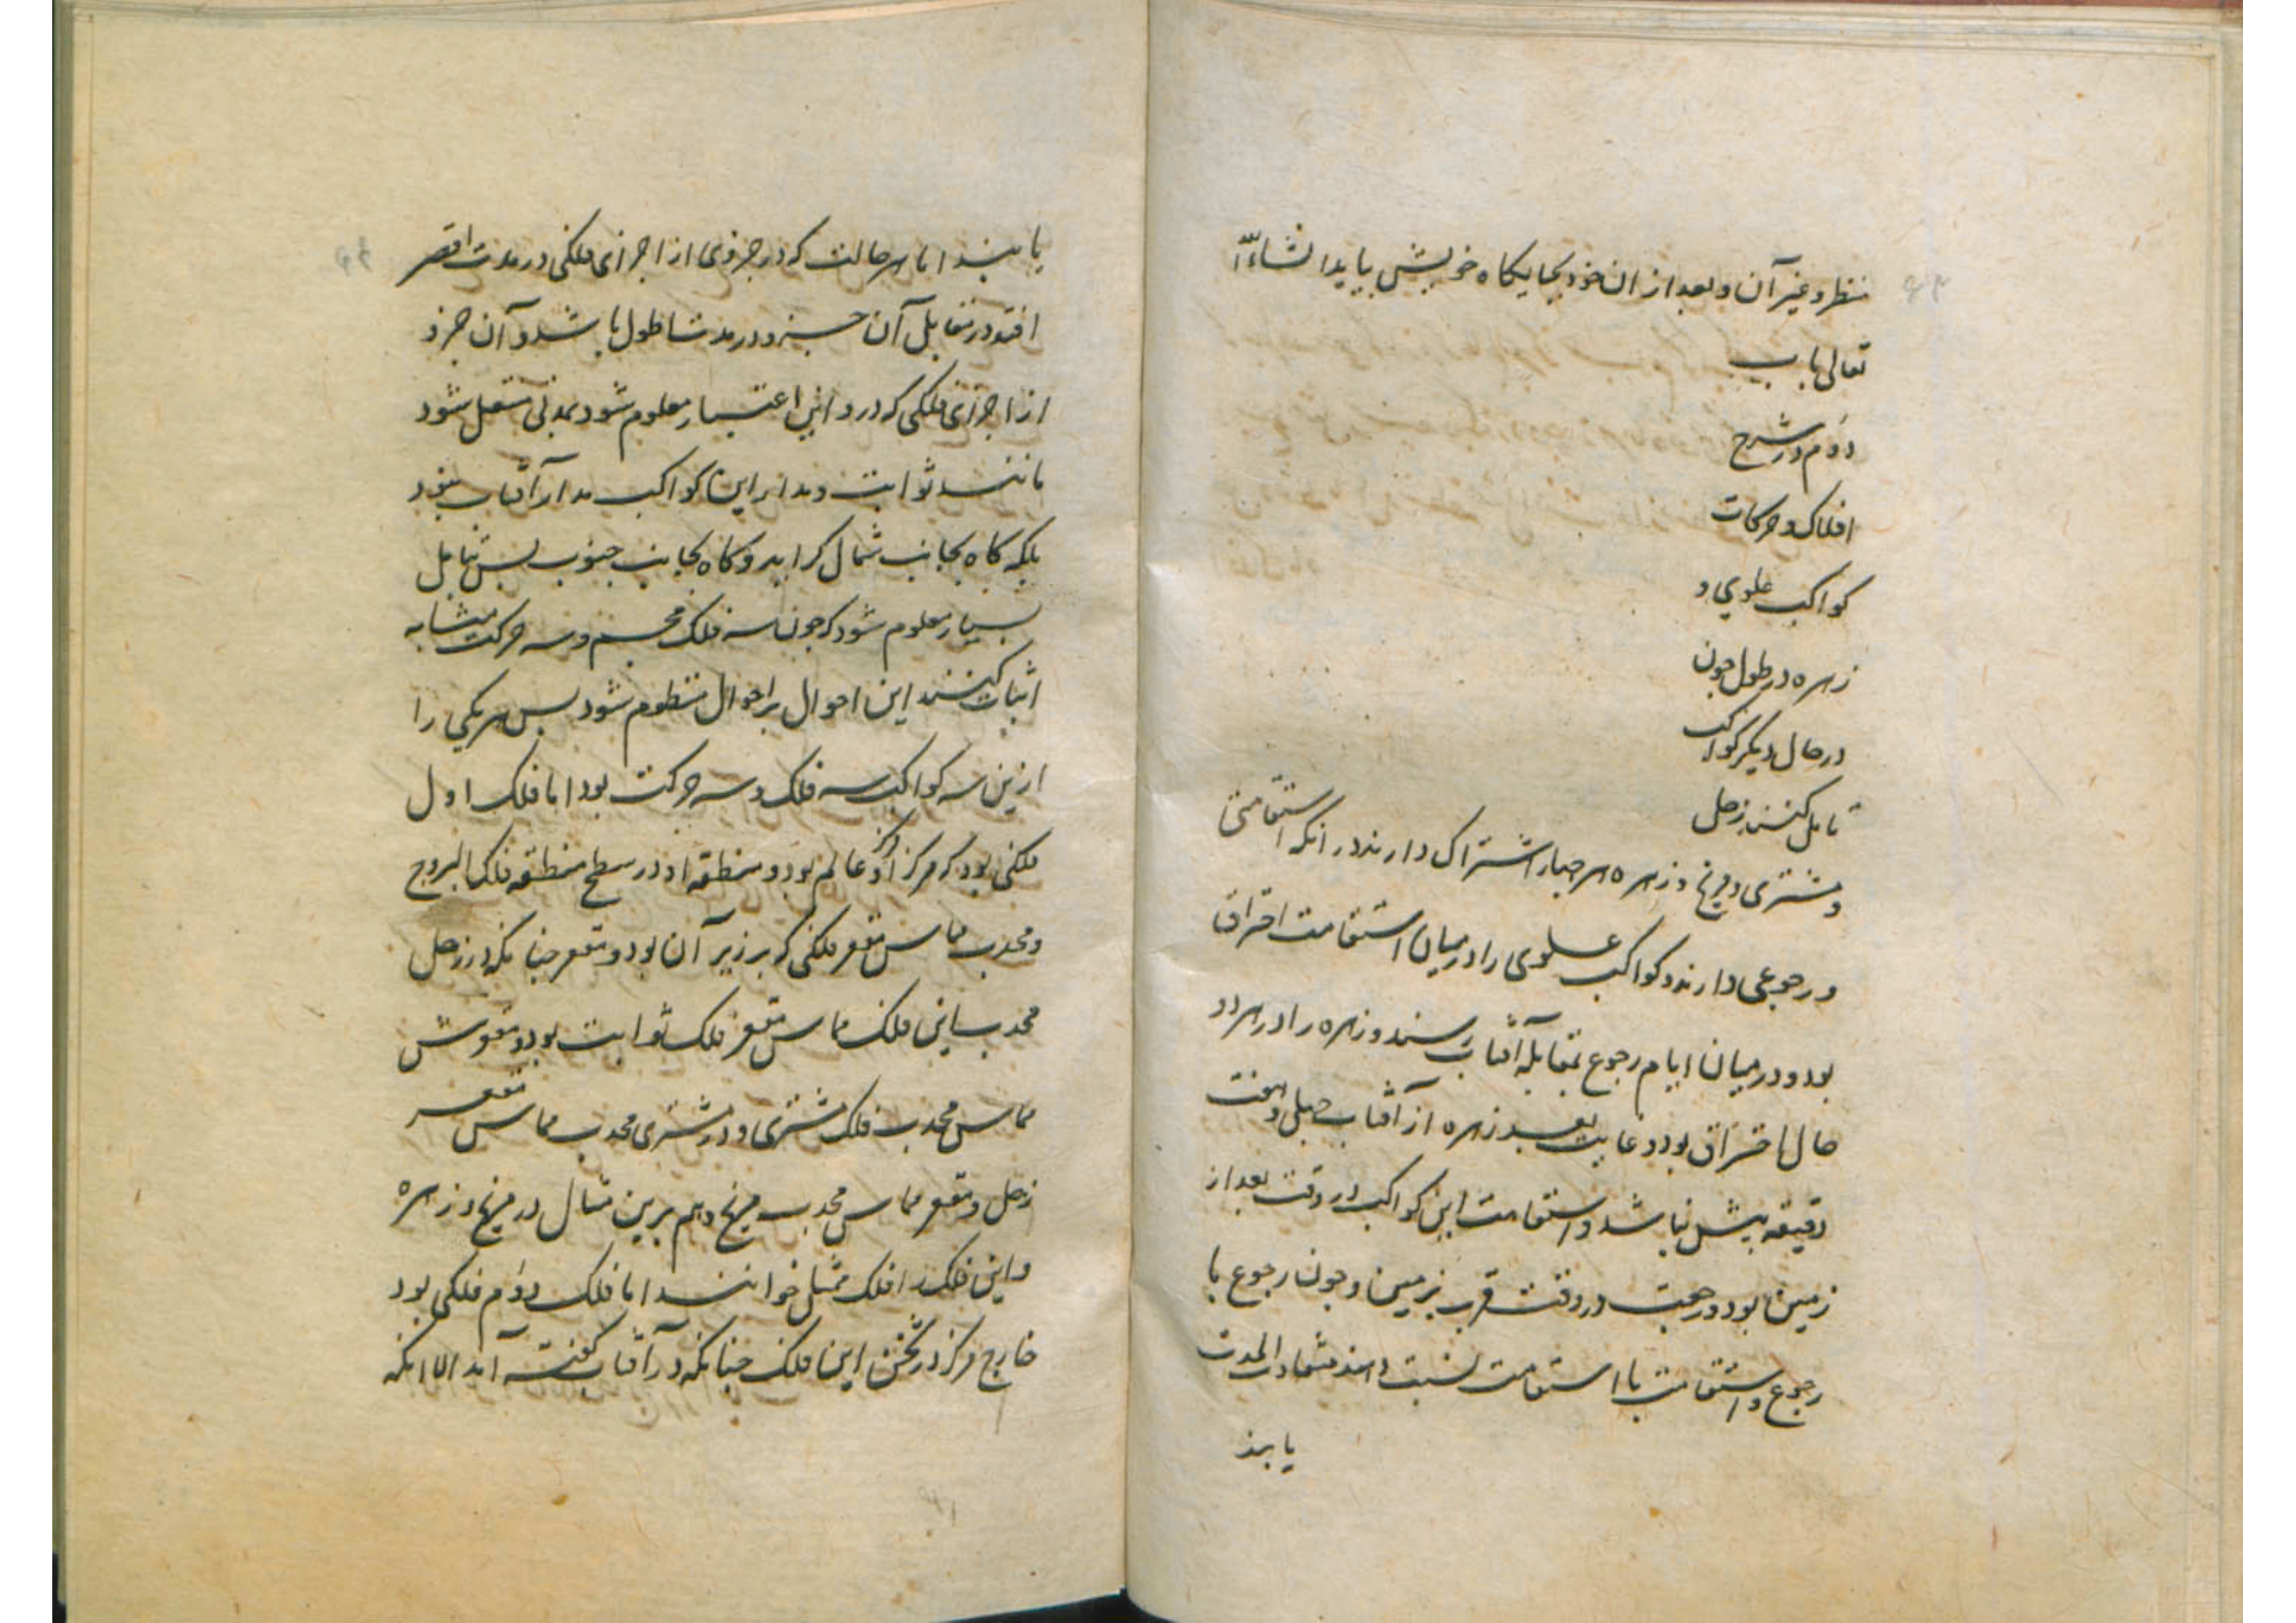 منظر و غیر آن و بعد از ان خود بجایکاه خویش بیاید انشاء الله
تعالی باب
دوم در شرح
افلاک و حرکات
کواکب علوی و
زهره در طول چون
در حال دیگر کواکب
تامل کنند زحل
و مشتری و مریخ و زهره هر چهار اشتراک دارند در انکه استقامتی
و رجوعی دارند و کواکب علوی را در میان استقامت احتراق
بود و در میان ایام رجوع بمقابله آفتاب رسند و زهره را در هر دو
حال احتراق بود و غایت بعد زهره از آفتاب چهل و هفت
دقیقه بیش نباشد و استقامت این کواکب در وقت بعد از
زمین بود و رجعت در وقت قرب بزمین و چون رجوع با
رجوع و استقامت با استقامت نسبت دهند متشابه المدت
یابند
یابند اما هر حالت که در جزوی از اجزای فلکی در مدت اقصر
افتد در مقابل آن جزو در مدت اطول باشد و آن جزو
از اجزای فلکی که درو این اعتبار معلوم شود بمدتی منتقل شود
مانند ثوابت و مدار این کواکب مدار آفتاب نبود
بلکه کاه بجانب شمال کراید و کاه بجانب جنوب پس بتامل
بسیار معلوم شود که چون سه فلک مجسم و سه حرکت متشابه
اثبات کنند این احوال بر احوال منظوم شود پس هر یکی را
ازین سه کواکب سه فلک و سه حرکت بود اما فلک اول
فلکی بود که مرکز او مرکز عالم بود و منطقه او در سطح منطقه فلک البروج
و محدب مماس مقعر فلکی که برزبر آن بود و مقعر چنانکه در زحل
محدب این فلک مماس مقعر فلک ثوابت بود و مقعرش
مماس محدب فلک مشتری و در مشتری محدب مماس مقعر
زحل و مقعر مماس محدب مریخ و هم برین مثال در مریخ و زهره
و این فلک را فلک ممثل خوانند اما فلک دوم فلکی بود
خارج مرکز در ثخن این فلک چنانکه در آفتاب کفته آمد الا انکه